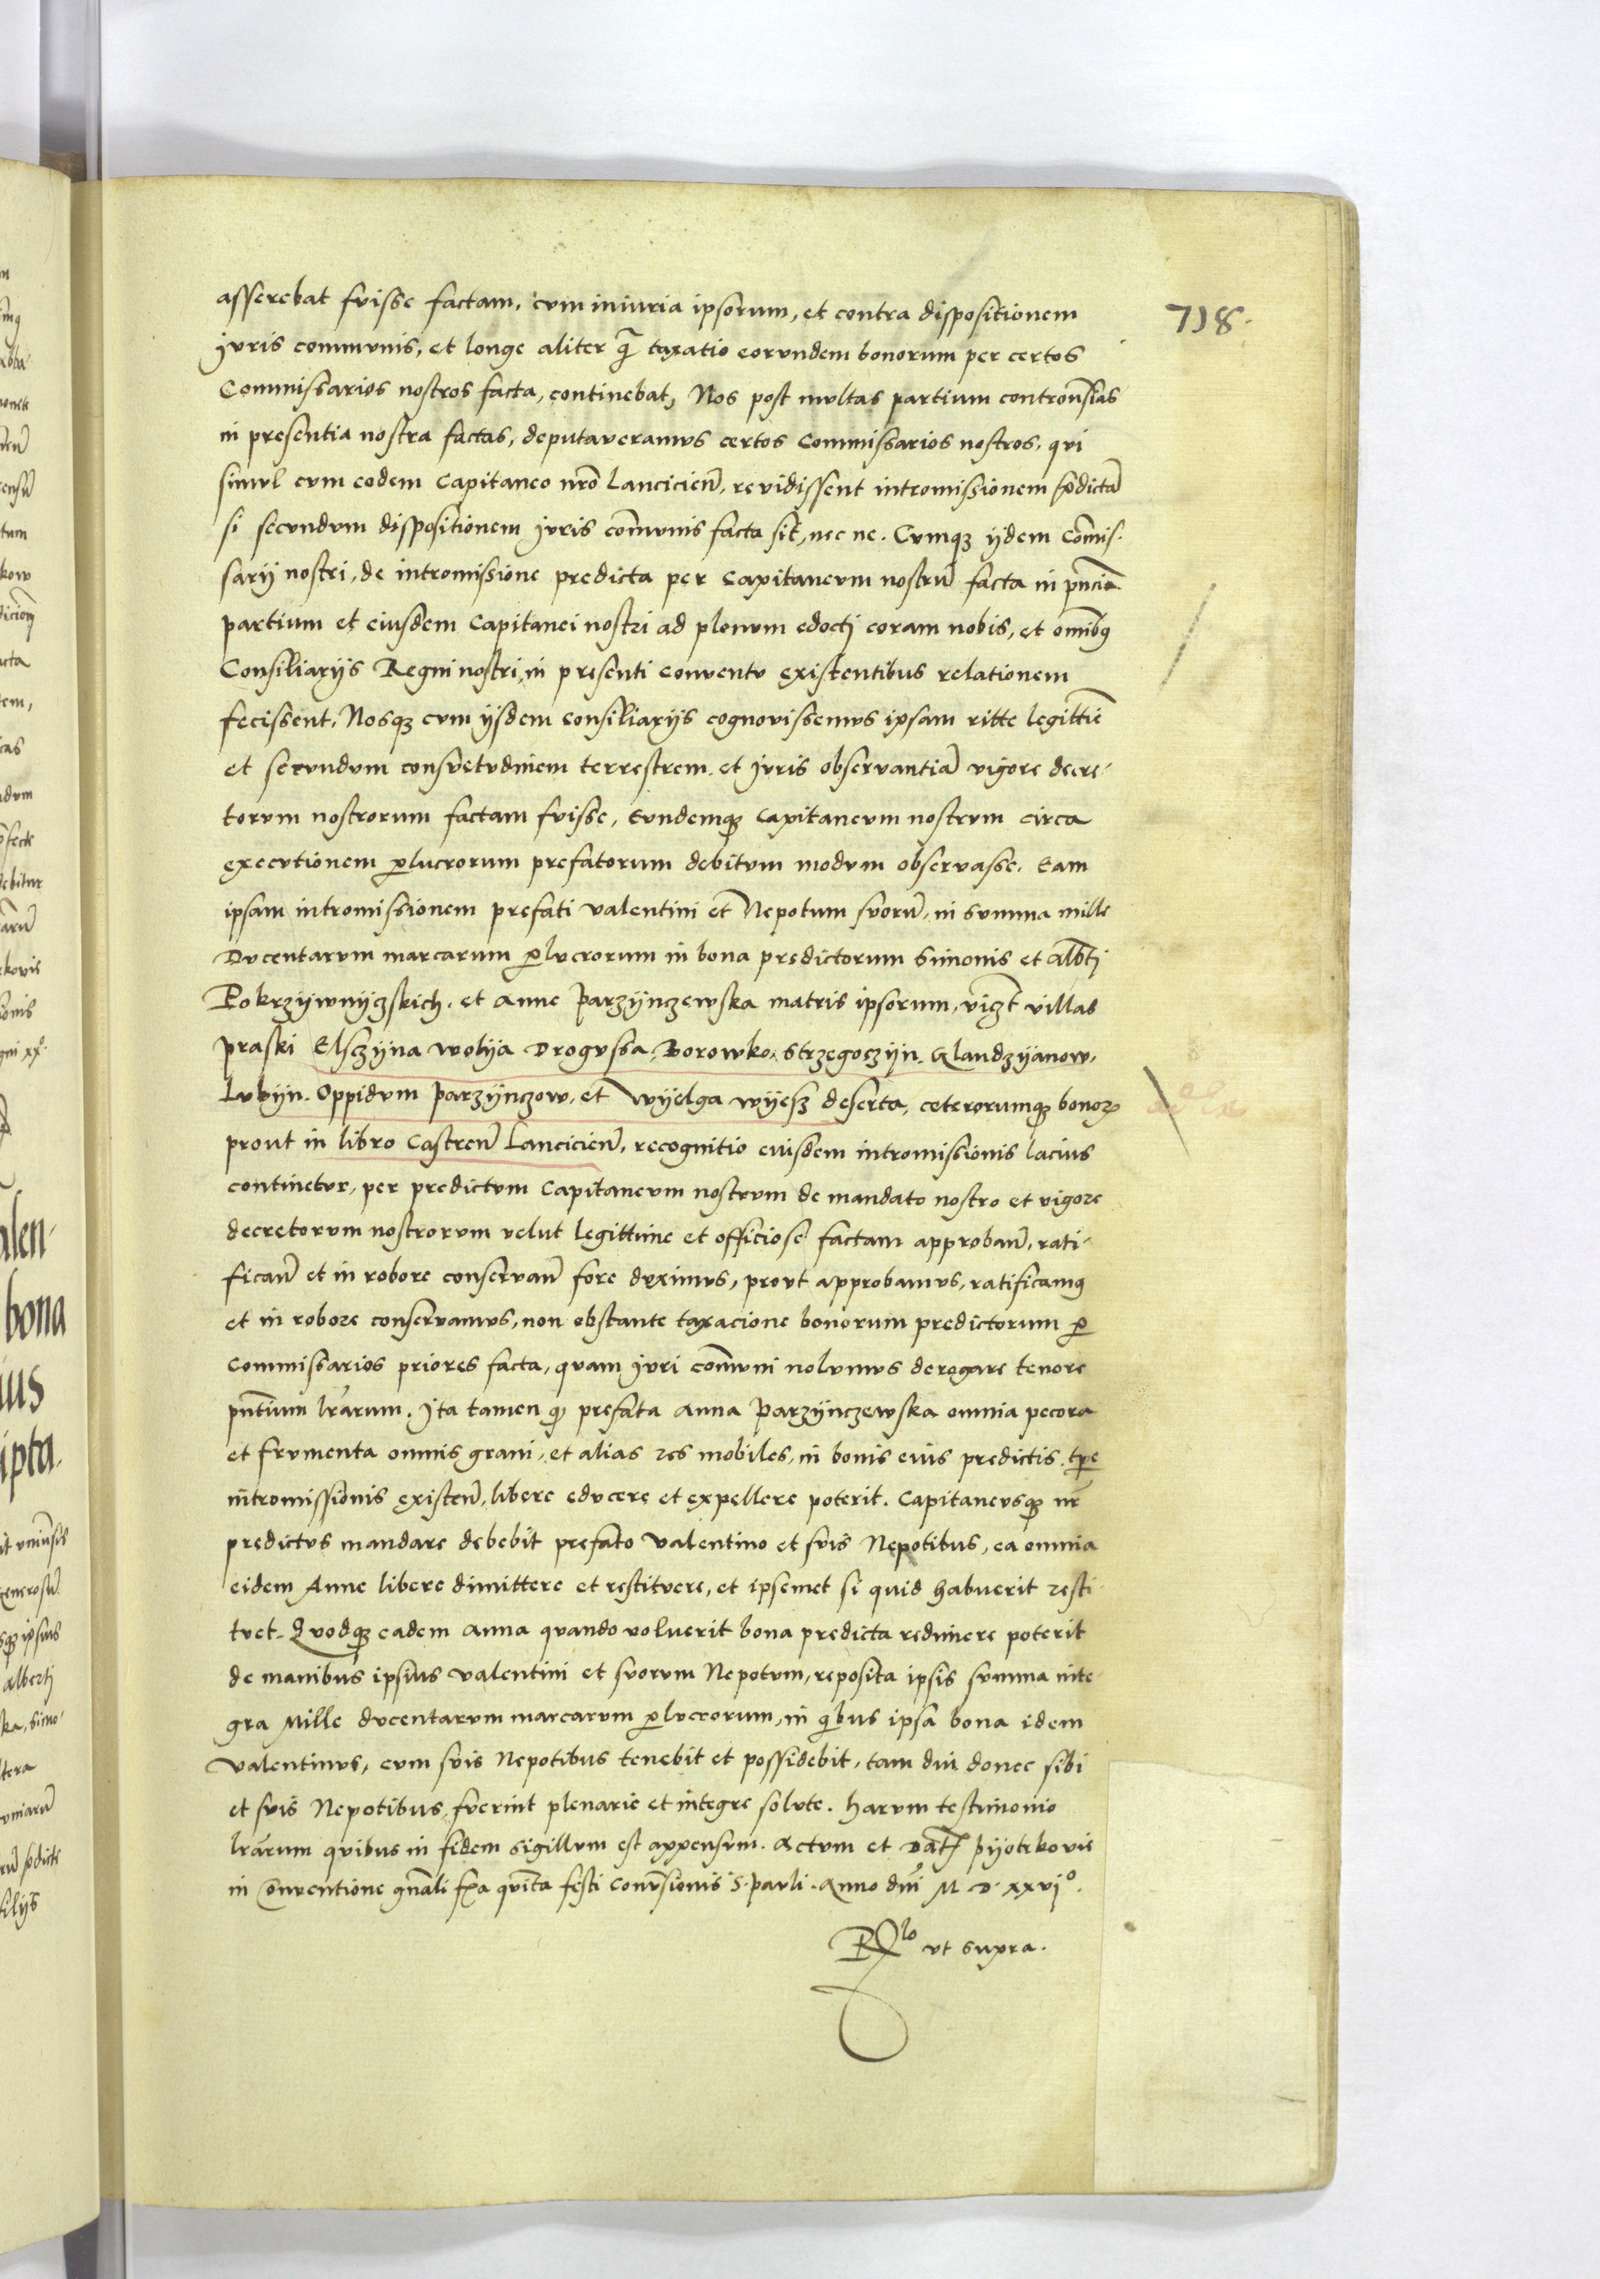 718.
asserebat fuisse factam, cum iniuria ipsorum, et contra dispositionem
Juris communis, et longe aliter q̃ taxatio eorundem bonorum per certos
Commissarios nostros facta, continebat, Nos post multas partium controu̾sias
in presentia nostra factas, deputaveramus certos Commissarios nostros, qui
simul cum eodem Capitaneo nr̃o Lancicien̄, revidissent intromissionem p̄dictā
si secundum dispositionem Juris com̄unis facta sit, nec ne. Cumqȝ ijdem Com̄is-
sarij nostri, de intromissione predicta per Capitaneum nostrū facta in pn̄cia
partium et eiusdem Capitanei nostri ad plenum edocti coram nobis, et omībꝯ
Consiliarijs Regni nostri, in presenti conventu existentibus relationem
fecissent, Nosqȝ cum ijsdem Consiliarijs cognovissemus ipsam ritte legittīe
et secundum consuetudinem terrestrem, et Juris observantiā vigore decre-
torum nostrorum factam fuisse, Eundemqȝ Capitaneum nostrum circa
executionem ꝑlucrorum prefatorum debitum modum observasse. Eam
ipsam intromissionem prefati Valentini et Nepotum suorū, in summa mille
Ducentarum marcarum ꝑlucrorum in bona predictorum Simonis et Alb̄tj
Pokrzywnyczskich, et Anne Parzynczewska matris ipsorum, vicȝt villas
Praski Elsczyna Wolya Drogussa, Borowko, Strzegoczyn, Glandzyanow,
Lubyn. Oppidum Parzynczow, et Wyelga wyesz deserta, ceterorumqȝ bonoꝝ
prout in libro Castren̄ Lancicien̄, recognitio eiusdem intromissionis lacius
continetur, per predictum Capitaneum nostrum de mandato nostro et vigore
decretorum nostrorum velut legittime et officiose factam approban̄, rati-
fican̄ et in robore conservan̄ fore duximus, prout approbamus, ratificamꝯ
et in robore conservamus, non obstante taxacione bonorum predictorum ꝑ
Commissarios priores facta, quam Juri com̄uni nolumus derogare tenore
pn̄tium lr̃arum. Jta tamen ꝙ prefata Anna Parzynczewska omnia pecora
et frumenta omnis grani, et alias res mobiles, in bonis eius predictis tp̄re
intromissionis existen̄, libere educere et expellere poterit. Capitaneusqȝ nr̄
predictus mandare debebit prefato Valentino et suis Nepotibus, ea omnia
eidem Anne libere dimittere et restituere, et ipsemet si quid habuerit resti-
tuet. Quodqȝ eadem Anna quando voluerit bona predicta redimere poterit
de manibus ipsius Valentini et suorum Nepotum, reposita ipsis summa inte-
gra Mille ducentarum marcarum ꝑlucrorum, in q̇bus ipsa bona idem
Valentinus, cum suis Nepotibus tenebit et possidebit, tam diu donec sibi
et suis Nepotibus, fuerint plenarie et integre solute. Harum testimonio
lr̃arum quibus in fidem sigillum est appensum. Actum et Datȝ Pyotrkovie
in Conventione gn̄ali fr̄a quīta festi Conu̾sionis S. Pauli. Anno dn̄i M. D. xxvjº.
Rlo ut supra.